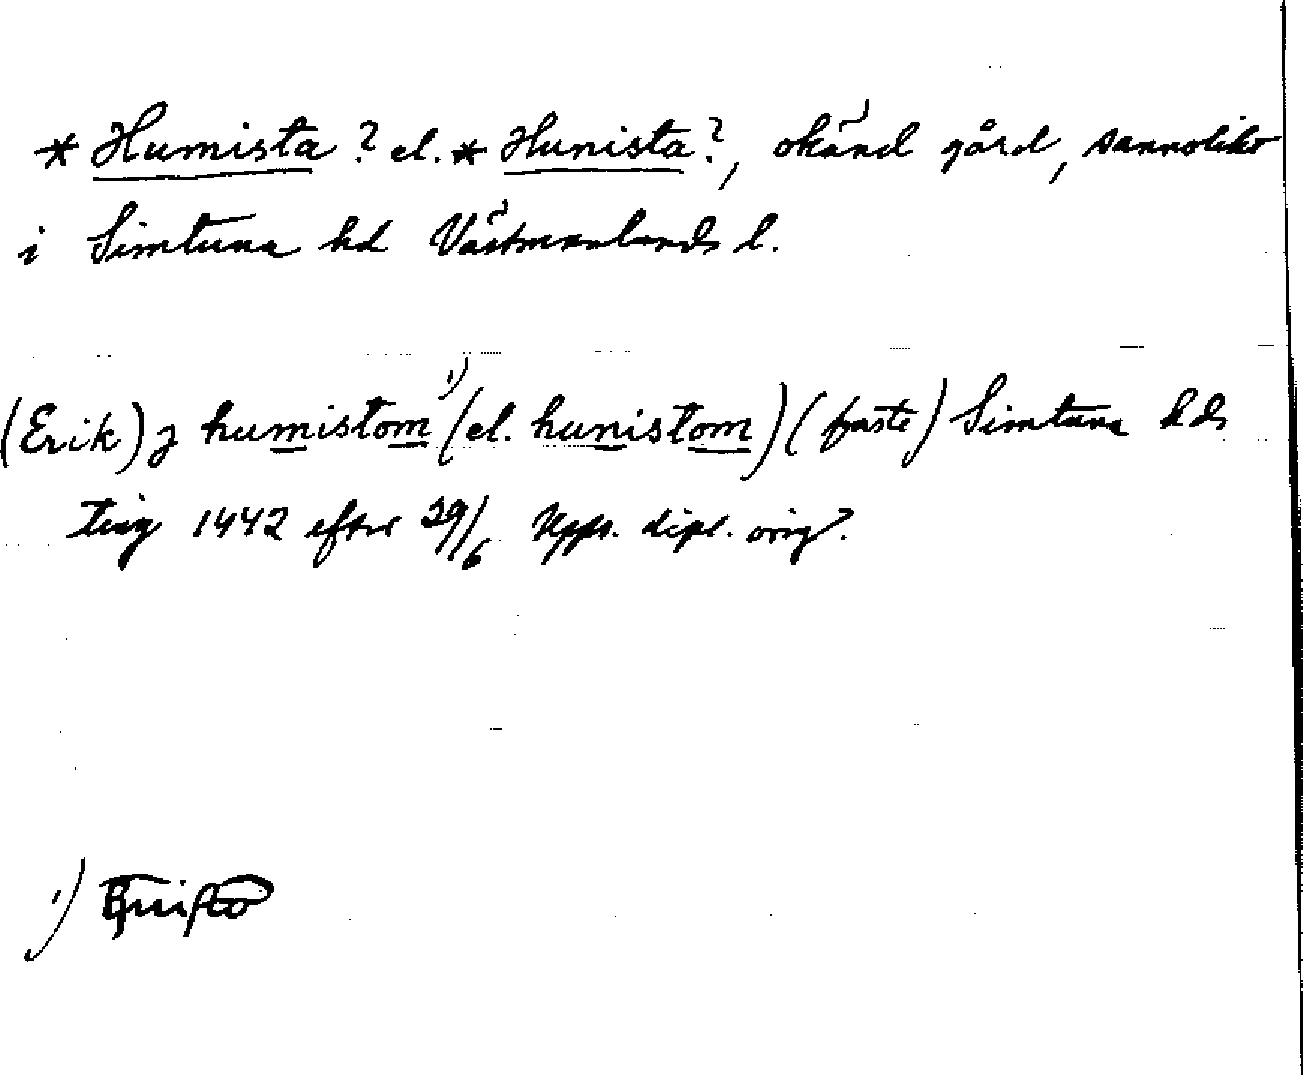 * Humista ? el. * Hunista?, okänd gård, sannolikt
i Simtuna hd Västmanlands l.
(Erik) j humistom ¹) (el. hunistom) (faste) Simtuna hds
ting 1442 efter 29/6 Upps. dipl. orig?.
¹)